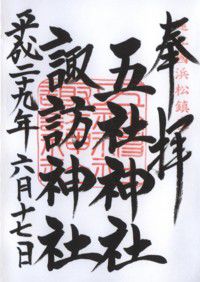 奉拝
五社神社
諏訪神社
平成二十九年 六月十七日